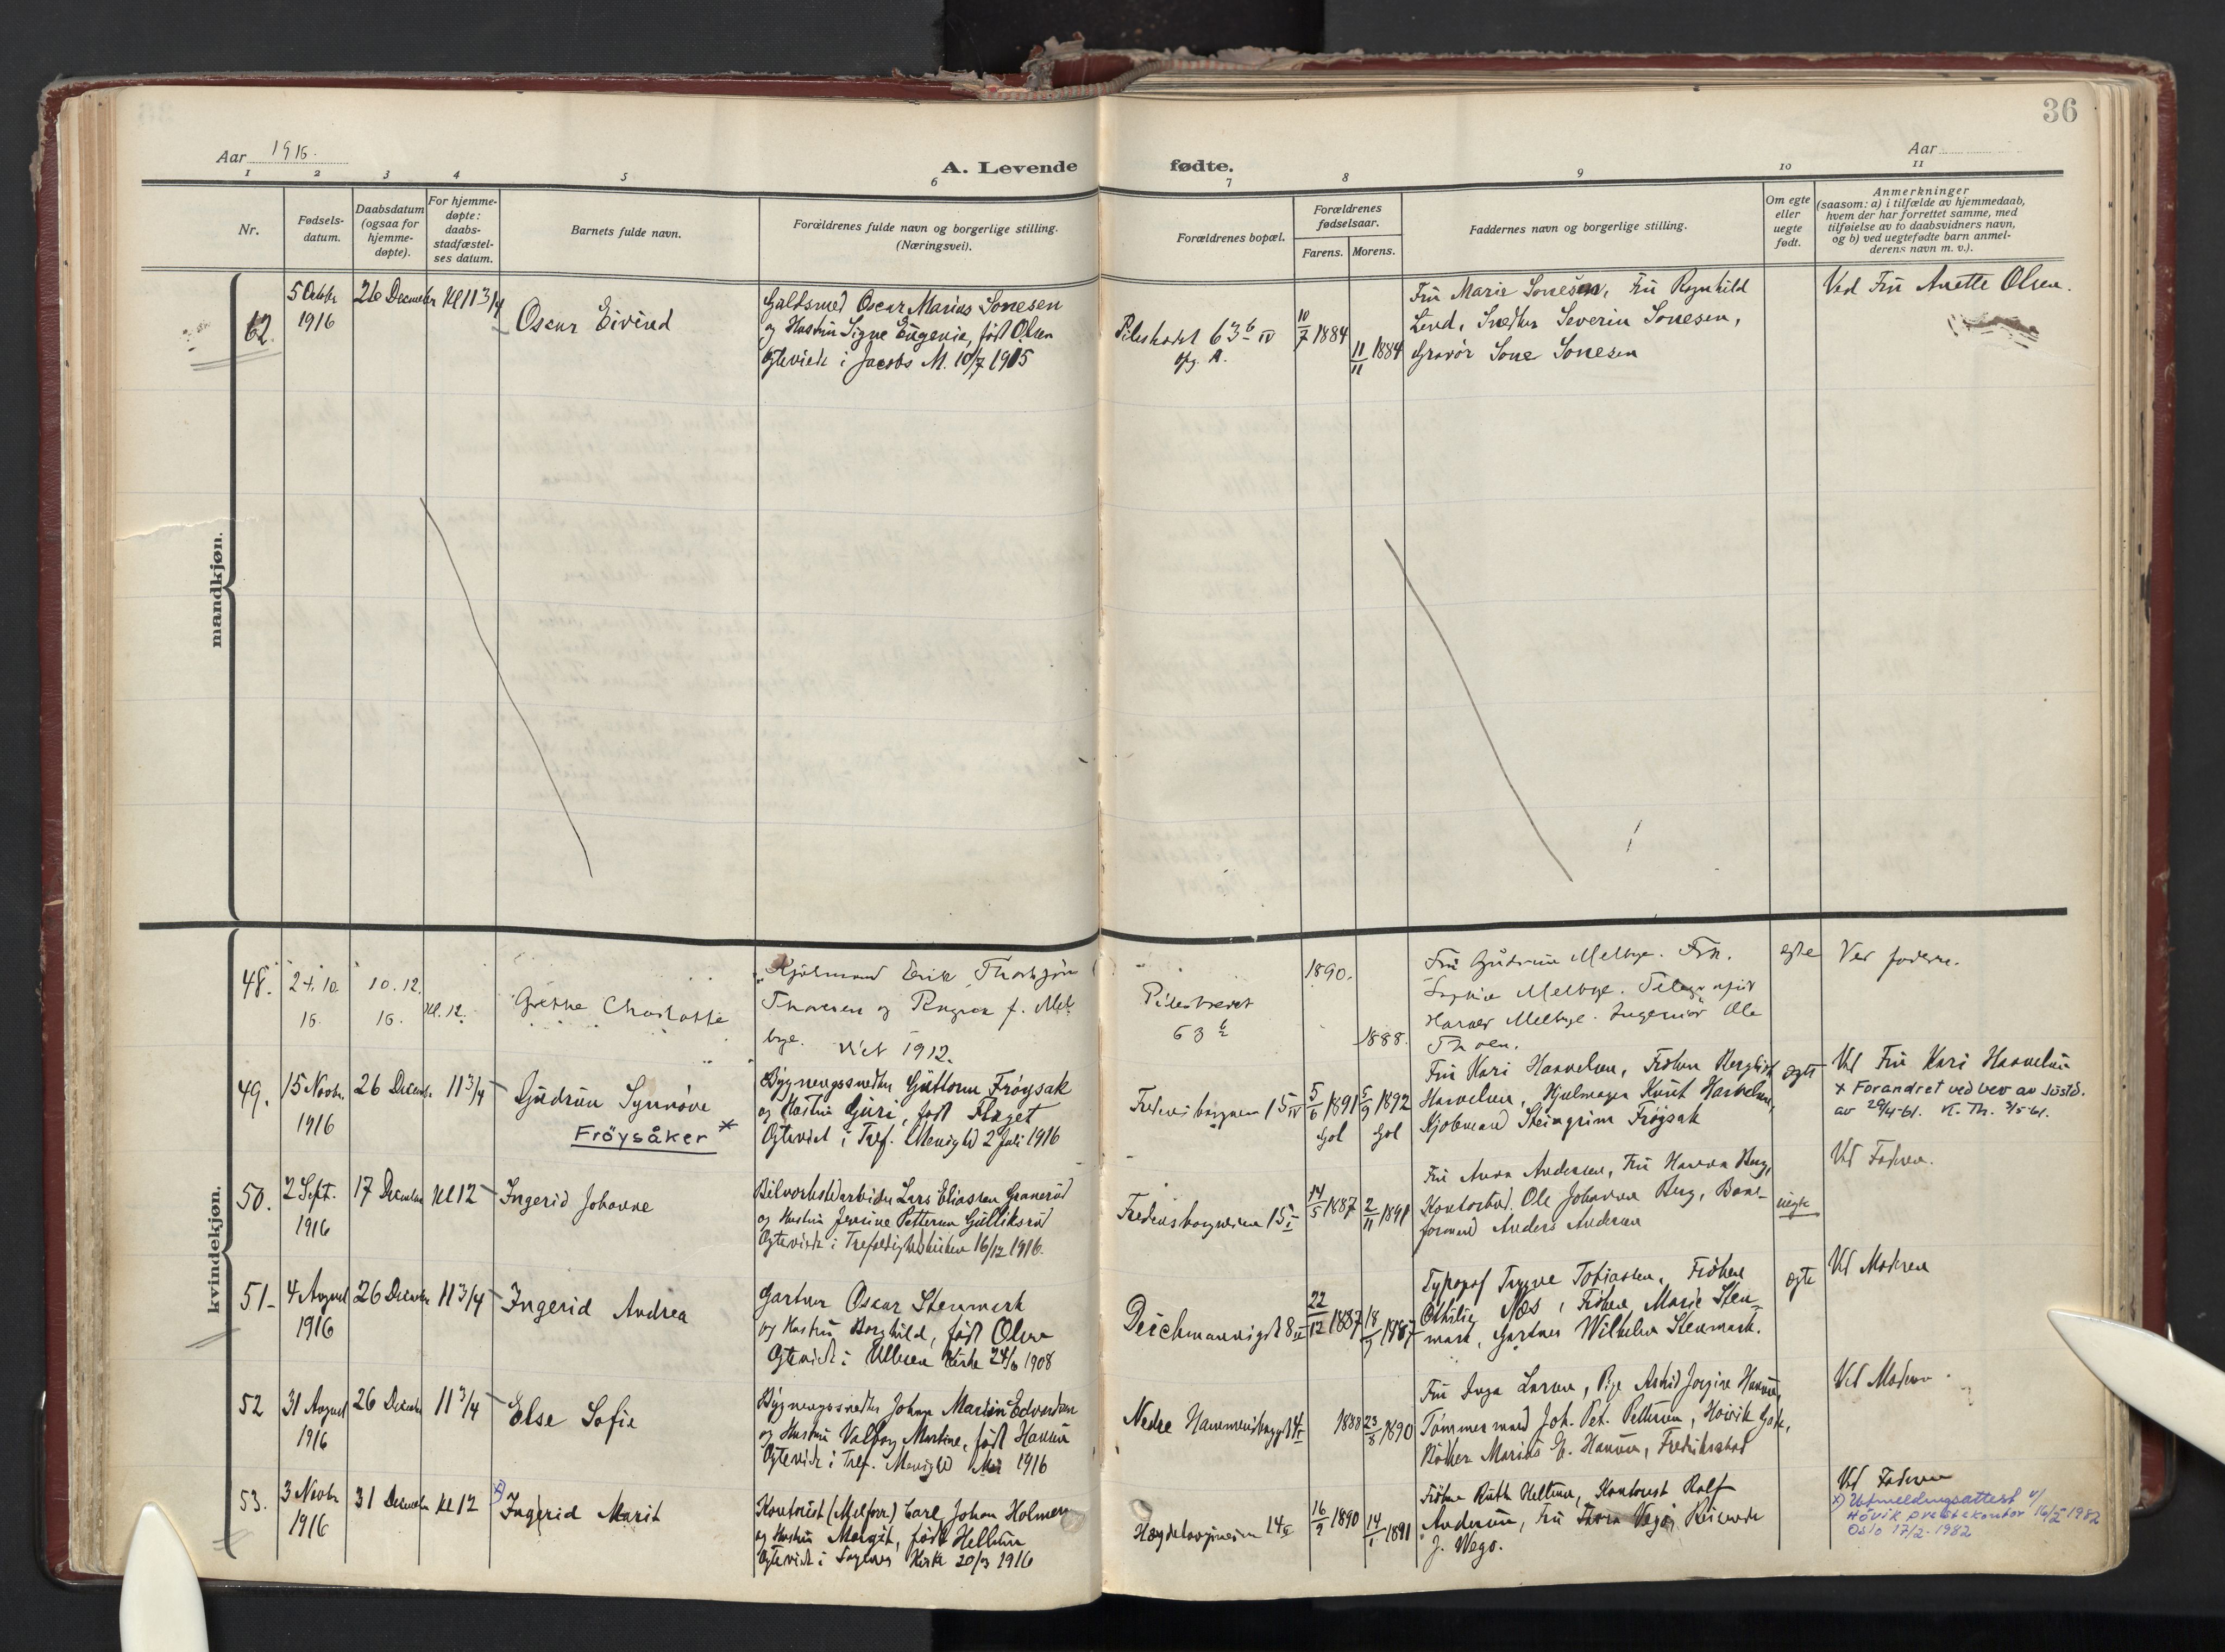 36
Aar 1916.
A. Levende fødte.
Aar
1 2 3 4 5 6 7 8 9 10 11
Nr.
Fødsels-
datum.
Daabsdatum
(ogsaa for
hjemme-
døpte).
For hjemme-
døpte:
daabs-
stadfæstel-
ses datum.
Barnets fulde navn.
Forældrenes fulde navn og borgerlige stilling.
(Næringsvei).
Forældrenes bopæl.
Forældrenes
fødselsaar.
Farens. Morens.
Faddernes navn og borgerlige stilling.
Om egte
eller
uegte
født.
Anmerkninger
(saasom: a) i tilfælde av hjemmedaab,
hvem der har forrettet samme, med
tilføielse av to daabsvidners navn,
og b) ved uegtefødte barn anmel-
derens navn m. v.).
mandkjøn.
62.
5 Octobr
1916
26 December
Kl 11 3/4
Oscar Eivind
Guldsmed Oscar Marius Sonesen
og Hustru Signe Eugenie, født Olsen
Egteviede i Jacobs M. 10/7 1915
Pilestrædet 63 b IV
opg. A.
10/7 1884
11/11 1884
Fru Marie Sonesen, Fru Ragnhild
Lund, Snedker Severin Sonesen,
Gravør Sone Sonesen
Ved Fru Anette Olsen.
kvindekjøn.
48.
24. 10.
16.
10. 12.
16.
Kl. 12.
Grethe Charlotte
Kjøbmand Erik Thorbjørn
Thoresen og Ragna f. Mel-
bye. viet 1912.
Pilestrædet
63 b
1890.
1888.
Fru Gudrun Melbye. Frk.
Melbye. Telegrafist
Melbye. Ingeniør Ole
Thoen.
egte
Ved faderen.
49.
15 Novbr.
1916
26 Decembr
11 3/4
Gudrun Synnøve
Frøysåker *
Bygningssnedker Guttorm Frøysak
og Hustru Guri, født Flaget
Egteviet i Tref. Menighed 2 Juli 1916
Fredensborgveien 15 IV
5/6 1891
Gol
5/9 1892
Gol
Fru Kari Haavelsen, Frøken Bergliot
Haavelsen, Hjulmager Knut Haavelsen,
Kjøbmand Steingrim Frøysak
egte
Ved Fru Kari Haavelsen
x Forandret ved bev av Justd.
av 29/4-61. K. Th. 3/5-61.
50.
2 Sept.
1916
17 December
Kl 12
Ingerid Johanne
Lars Eliassen Granerød
og Hustru Jensine Petterson Gulliksrud
Egteviede i Trefoldighedskirken 16/12 1916.
Fredensborgveien 15 I
14/5 1887
2/11 1891
Fru Anna Andersen, Fru Hanna Berg,
Kontorbud Ole Johannes Berg, Bane-
formand Anders Andersen
uegte
Ved Faderen.
51
4 August
1916
26 December
11 3/4
Ingerid Andrea
Gartner Oscar Stenmark
og Hustru Borghild, født Olsen
Egteviede i Ullern Kirke 24/6 1908
Deichmannsgt 8 II
22/12 1887
1887
Typograf Trygve Tobiassen, Frøken
Othilie Næs, Frøken Marie Sten-
mark, Gartner Wilhelm Stenmark.
egte
Ved Moderen
52
31 August
1916
26 December
11 3/4
Else Sofie
Bygningssnedker Johan Martin Edvardsen
og Hustru Valborg Martine, født Hansen
Egteviede i Tref. Menighed Mai 1916
Nedre Hammersborggt 4 I
1888
23/8 1890
Fru Inga Larsen, Pige Astrid Jorgine Hansen,
Tømmermand Joh. Pet. Pettersen, Høivik Gade,
Bøker Marius E. Hansen, Fredrikstad
Ved Moderen.
53.
3 Novbr
1916
31 December
Kl 12
x) Ingerid Marit
Kontorist Carl Johan Holmen
og Hustru Margit, født Hellum
Egteviede i Fagernes Kirke 20/3 1916
Hægdehaugsveien 14
16/9 1890
14/1 1891
Frøken Ruth Hellum, Kontorist Rolf
Andersen, Fru Thora Vego, Reisende
J. Wego.
Ved Faderen
x) Utmeldingsattest v/
Høvik prestekontor 16/2 1982
Oslo 17/2-1982